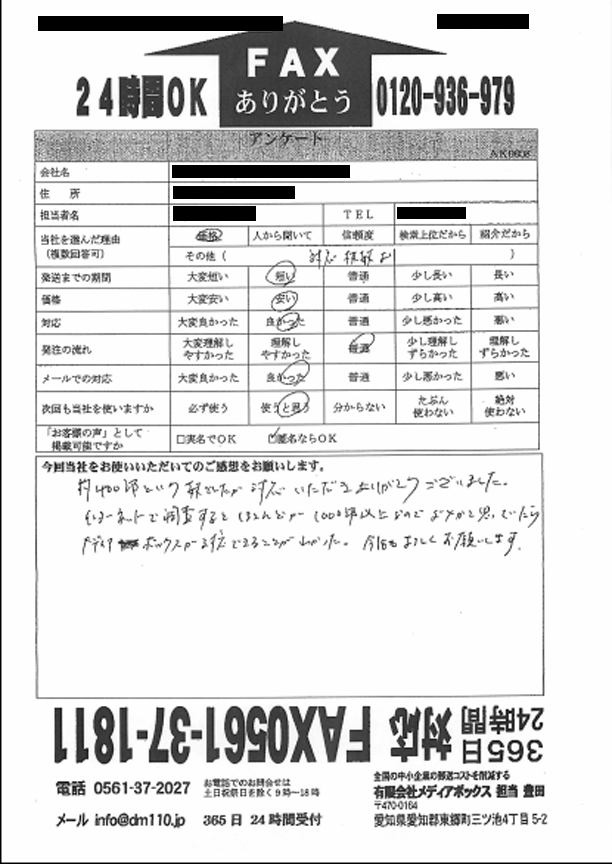 FAX
ありがとう
24時間OK
0120-936-979
アンケート
会社名
住　所
担当者名　TEL
当社を選んだ理由（複数回答可）　価格　人から聞いて　信頼度　検索上位だから　紹介だから
その他（　対応　）
発送までの期間　大変短い　短い　普通　少し長い　長い
価格　大変安い　安い　普通　少し高い　高い
対応　大変良かった　良かった　普通　少し悪かった　悪い
発注の流れ　大変理解しやすかった　理解しやすかった　普通　少し理解しずらかった　理解しずらかった
メールでの対応　大変良かった　良かった　普通　少し悪かった　悪い
次回も当社を使いますか　必ず使う　使うと思う　分からない　たぶん使わない　絶対使わない
「お客様の声」として掲載可能ですか　□実名でOK　☑匿名ならOK
今回当社をお使いいただいてのご感想をお願いします。
約400部という　でしたが対応いただきありがとうございました。
インターネットで調査するとほとんどが1000部以上なので　と思っていたら
メディアボックスが対応できることがわかった。今後もよろしくお願いします。
365日
24時間
対応
FAX0561-37-1811
電話 0561-37-2027
お電話でのお問合せは
土日祝祭日を除く9時～18時
メール info@dm110.jp　365日 24時間受付
全国の中小企業の郵送コストを削減する
有限会社メディアボックス 担当 豊田
〒470-0164
愛知県愛知郡東郷町三ツ池4丁目5-2